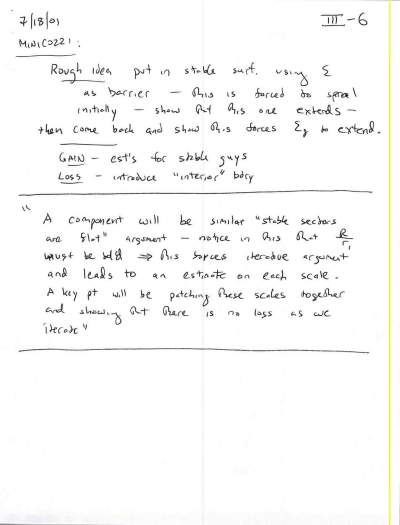 7/18/01
III-6
MINICOZZI:
Rough idea put in stable surf. using Σ
as barrier — this is forced to spiral
initially — show tht this one extends —
then come back and show this forces Σ to extend.
GAIN — est's for stable guys
LOSS — introduce "interior" bdry
"
A component will be similar "stable sectors
are flat" argument — notice in this that R/r₁
must be bdd ⇒ this forces iterative argument
and leads to an estimate on each scale.
A key pt will be patching these scales together
and showing tht there is no loss as we
iterate"